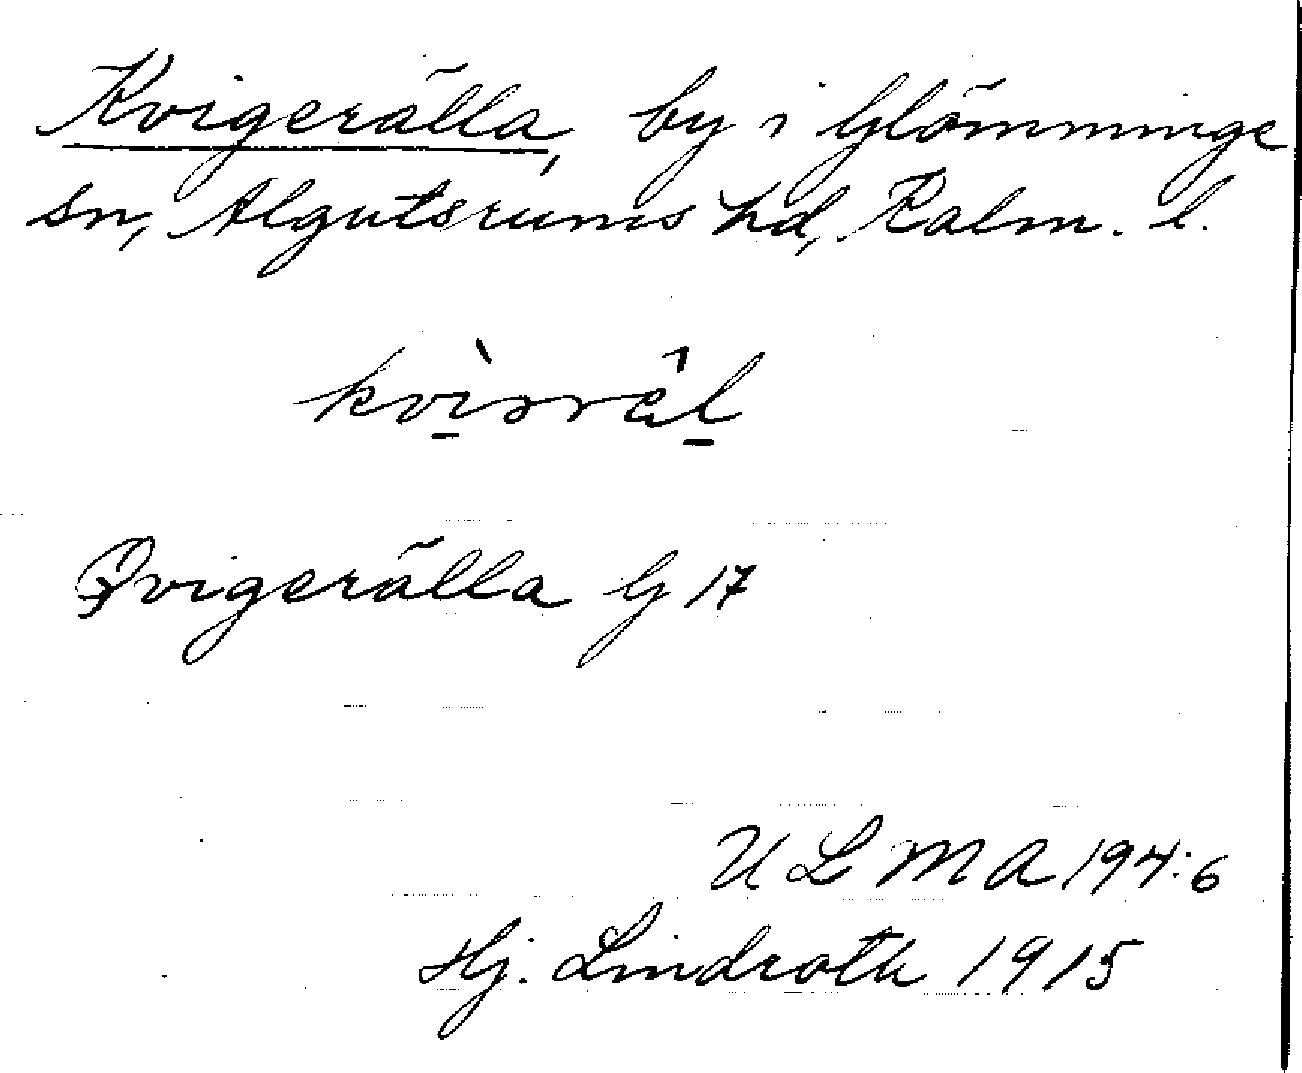 Kvigerälla, by i Glömminge
sn, Algutsrums hd, Kalm. l.
Qvigerälla G 17
ULMA 194:6
Hj. Lindroth 1915